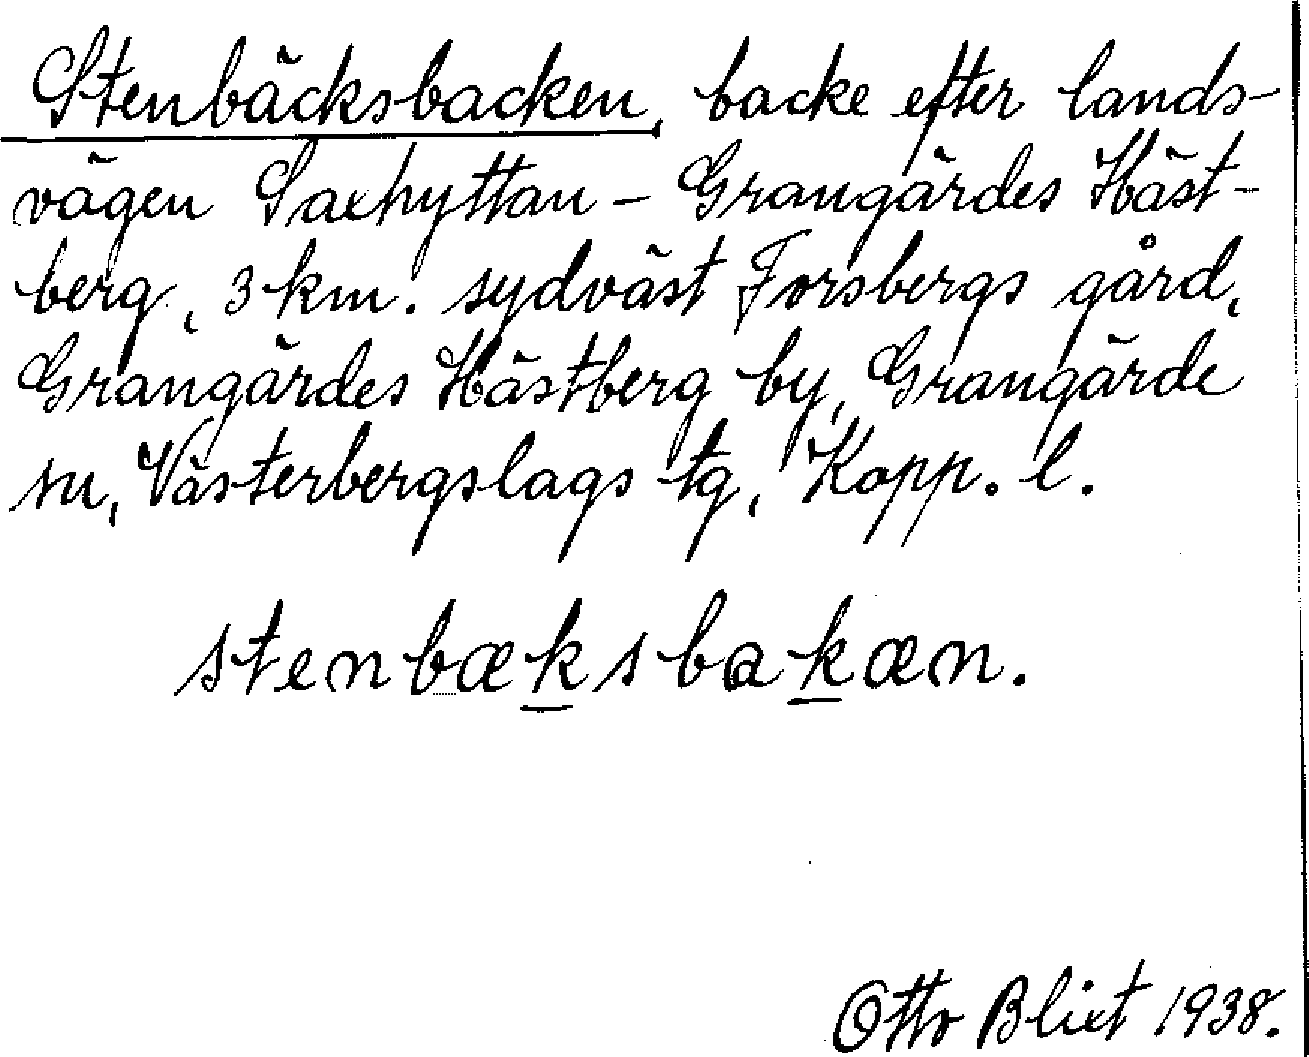 Stenbäcksbacken, backe efter lands-
vägen Saxhyttan - Grangärdes Häst-
berg, 3 km. sydväst Forsbergs gård,
Grangärdes Hästberg by, Grangärde
sn, Västerbergslags tg, Kopp. l.
stenbæksbakæn.
Otto Blixt 1938.